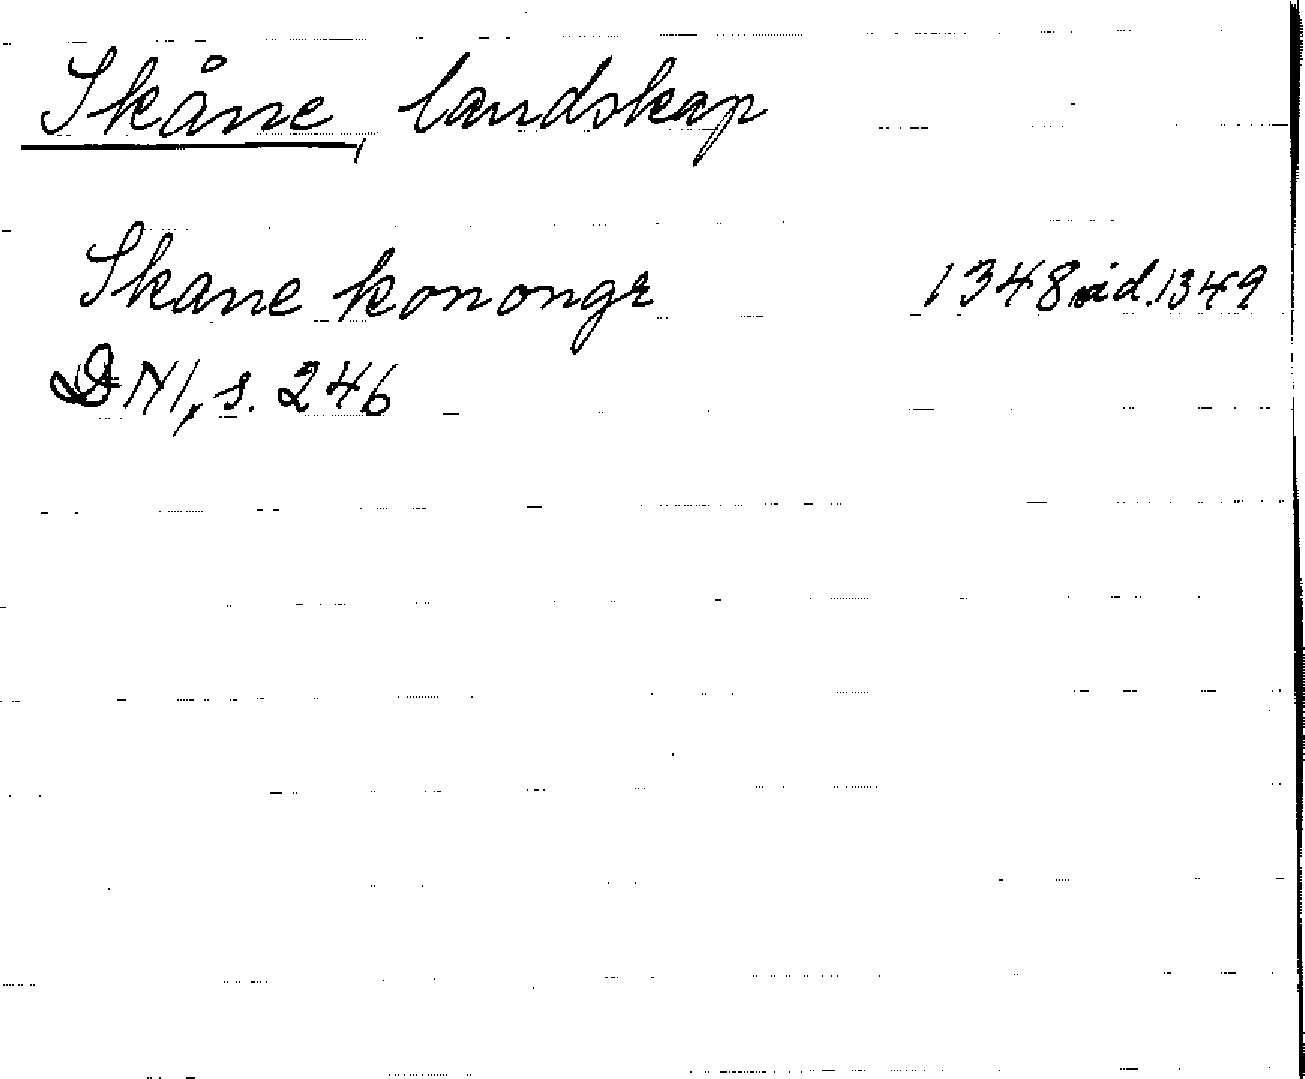 Skåne, landskap
Skane konongr 1348 vid. 1349
DN 1, s. 246